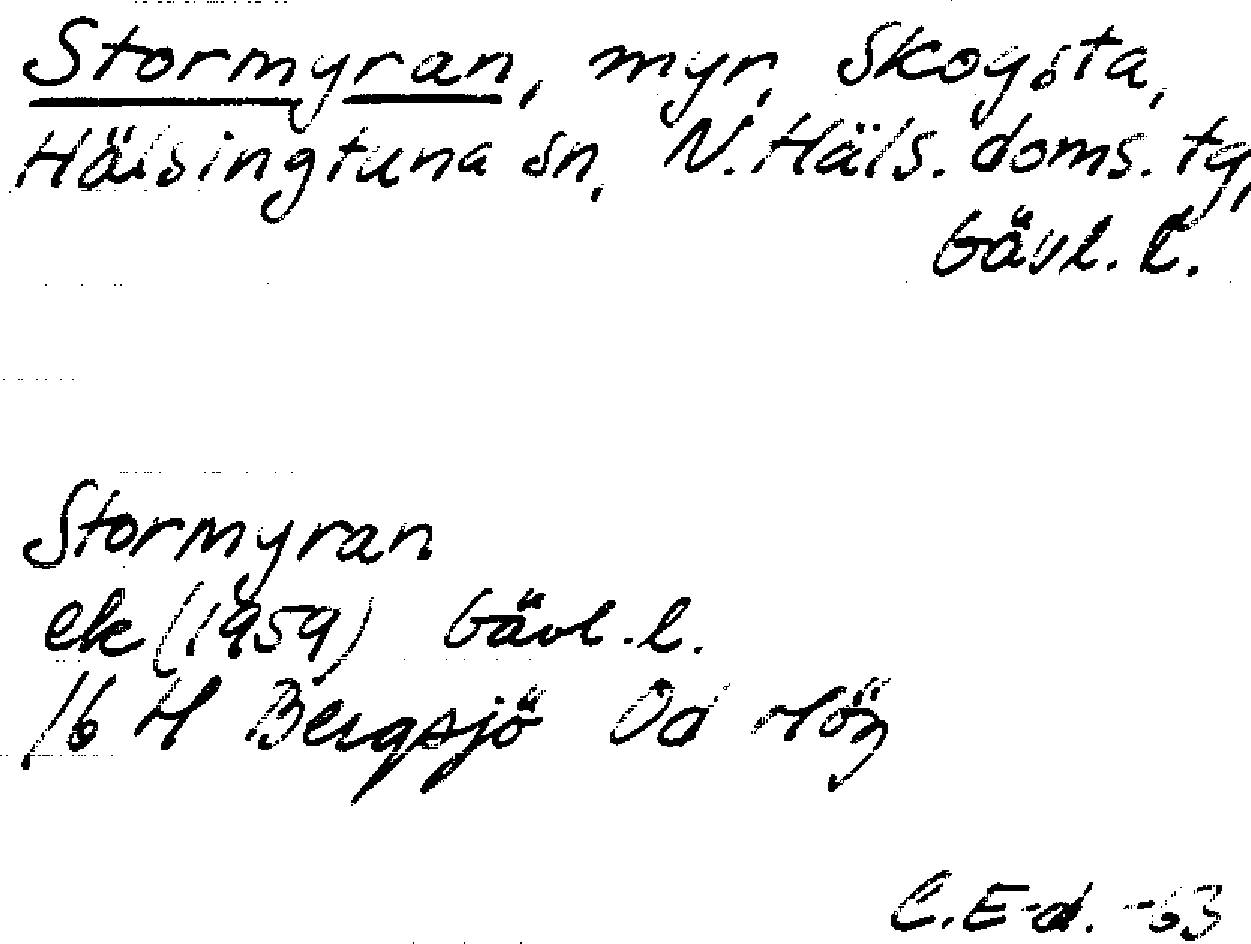 Stormyran, myr, Skogsta,
Hälsingtuna sn, N. Häls. doms. tg,
Gävl. l.
Stormyran
ek (1959) Gävl. l.
16 H Bergsjö Od
C. E-d. -63